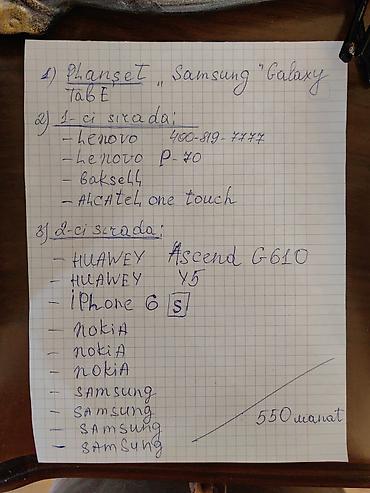 1) Planşet „Samsung" Galaxy
Tab E
2) 1-ci sırada;
- Lenovo 400-819-7777
- Lenovo P-70
- Baksell
- ALCATEL one touch
3) 2-ci sırada;
- HUAWEY Ascend G610
- HUAWEY Y5
- iPhone 6 S
- NOKIA
- NOKIA
- NOKIA
- SAMSUNG
- SAMSUNG
- SAMSUNG
- SAMSUNG
550 manat